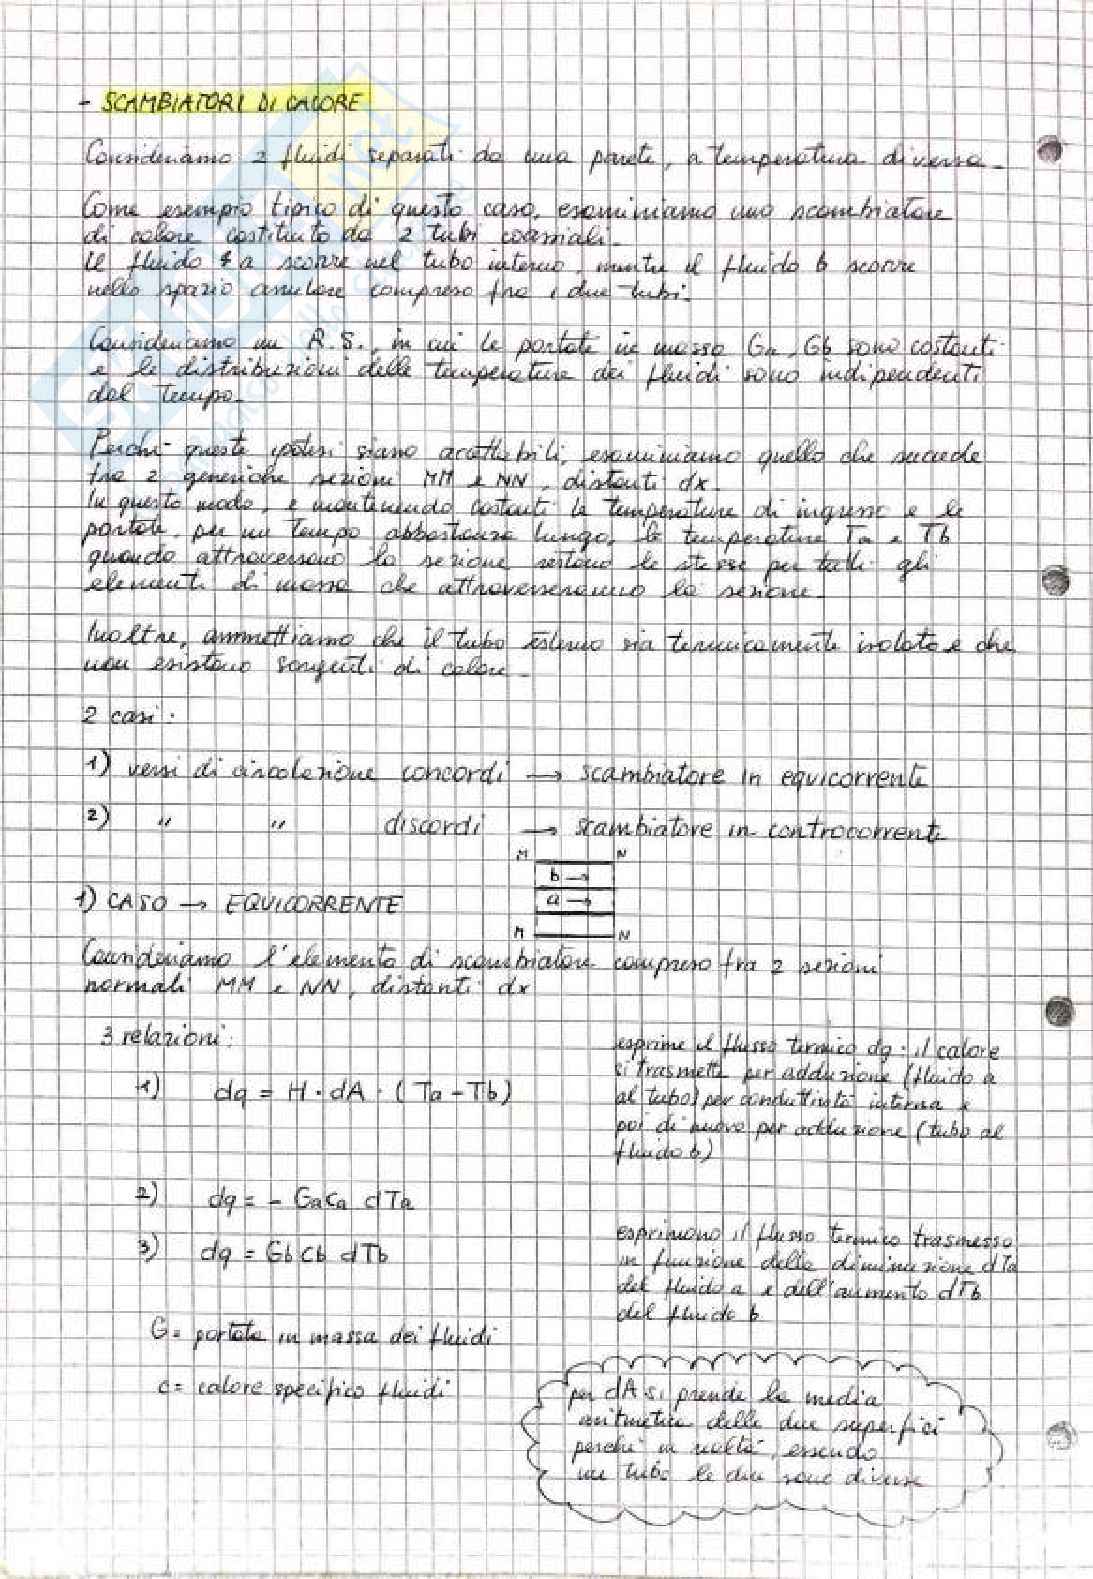 - SCAMBIATORI DI CALORE
Consideriamo 2 fluidi separati da una parete, a temperatura diversa.
Come esempio tipico di questo caso, esaminiamo uno scambiatore
di calore costituito da 2 tubi coassiali.
Il fluido a scorre nel tubo interno, mentre il fluido b scorre
nello spazio anulare compreso fra i due tubi.
Consideriamo un R.S., in cui le portate in massa Ga, Gb sono costanti
e le distribuzioni delle temperature dei fluidi sono indipendenti
dal tempo.
Perchè queste ipotesi siano accettabili, esaminiamo quello che succede
tra 2 generiche sezioni MM e NN, distanti dx.
In questo modo, e mantenendo costanti le temperature di ingresso e le
portate, per un tempo abbastanza lungo, le temperature Ta e Tb
quando attraversano la sezione restano le stesse per tutti gli
elementi di massa che attraverseranno la sezione.
Inoltre, ammettiamo che il tubo esterno sia termicamente isolato e che
non esistano sorgenti di calore.
2 casi:
1) versi di circolazione concordi → scambiatore in equicorrente
2) " " discordi → scambiatore in controcorrente
M N
b →
a →
M N
1) CASO → EQUICORRENTE
Consideriamo l'elemento di scambiatore compreso fra 2 sezioni
normali MM e NN, distanti dx
3 relazioni:
1) dq = H · dA · (Ta - Tb)
esprime il flusso termico dq: il calore
si trasmette per adduzione (fluido a
al tubo) per conduttività interna e
poi di nuovo per adduzione (tubo al
fluido b)
2) dq = - Ga ca dTa
3) dq = Gb cb dTb
esprimono il flusso termico trasmesso
in funzione della diminuzione dTa
del fluido a e dell'aumento dTb
del fluido b
G = portata in massa dei fluidi
c = calore specifico fluidi
per dA si prende la media
aritmetica delle due superfici
perchè in realtà, essendo
un tubo le due sono diverse